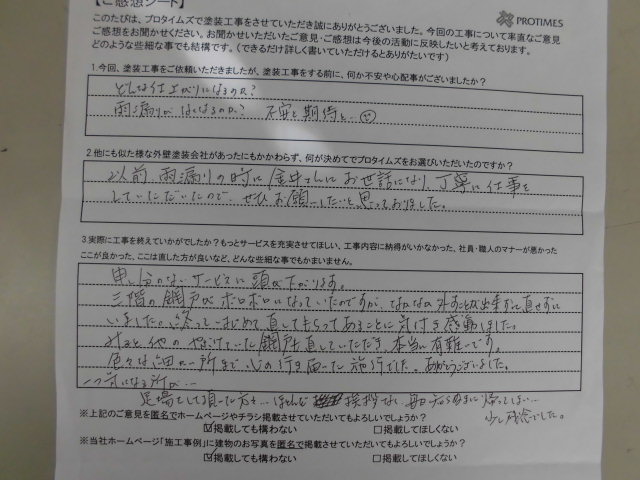 【ご感想シート】
PROTIMES
このたびは、プロタイムズで塗装工事をさせていただき誠にありがとうございました。今回の工事について率直なご意見
ご感想をお聞かせください。お聞かせいただいたご意見・ご感想は今後の活動に反映したいと考えております。
どのような些細な事でも結構です。(できるだけ詳しく書いていただけるとありがたいです)
1.今回、塗装工事をご依頼いただきましたが、塗装工事をする前に、何か不安や心配事がございましたか?
どんな仕上がりになるのか?
雨漏りがなおるのか? 不安と期待と
2.他にも似た様な外壁塗装会社があったにもかかわらず、何が決めてでプロタイムズをお選びいただいたのですか?
以前、雨漏りの時に さんにお世話になり、丁寧に仕事を
していただいたので、ぜひお願いしたいと思っておりました。
3.実際に工事を終えていかがでしたか?もっとサービスを充実させてほしい、工事内容に納得がいかなかった、社員・職人のマナーが悪かった
ここが良かった、ここは直した方が良いなど、どんな些細な事でもかまいません。
申し分のないサービスに頭が下がります。
三階の網戸がボロボロになっていたのですが、 外すことが出来ずに直せずに
いました。終ってはじめて直してもらってあることに気付き感動しました。
他の やぶけていた網戸も直していただき、本当に有難いです。
色々な細かい所まで心の行き届いた施行でした。ありがとうございました。
一つ気になる所が…
足場をして頂いた方々…ほとんど 挨拶がない 帰ってしまい…
少し残念でした。
※上記のご意見を匿名でホームページやチラシ掲載させていただいてもよろしいでしょうか?
☑掲載しても構わない □掲載してほしくない
※当社ホームページ「施工事例」に建物のお写真を匿名で掲載させていただいてもよろしいでしょうか?
☑掲載しても構わない □掲載してほしくない